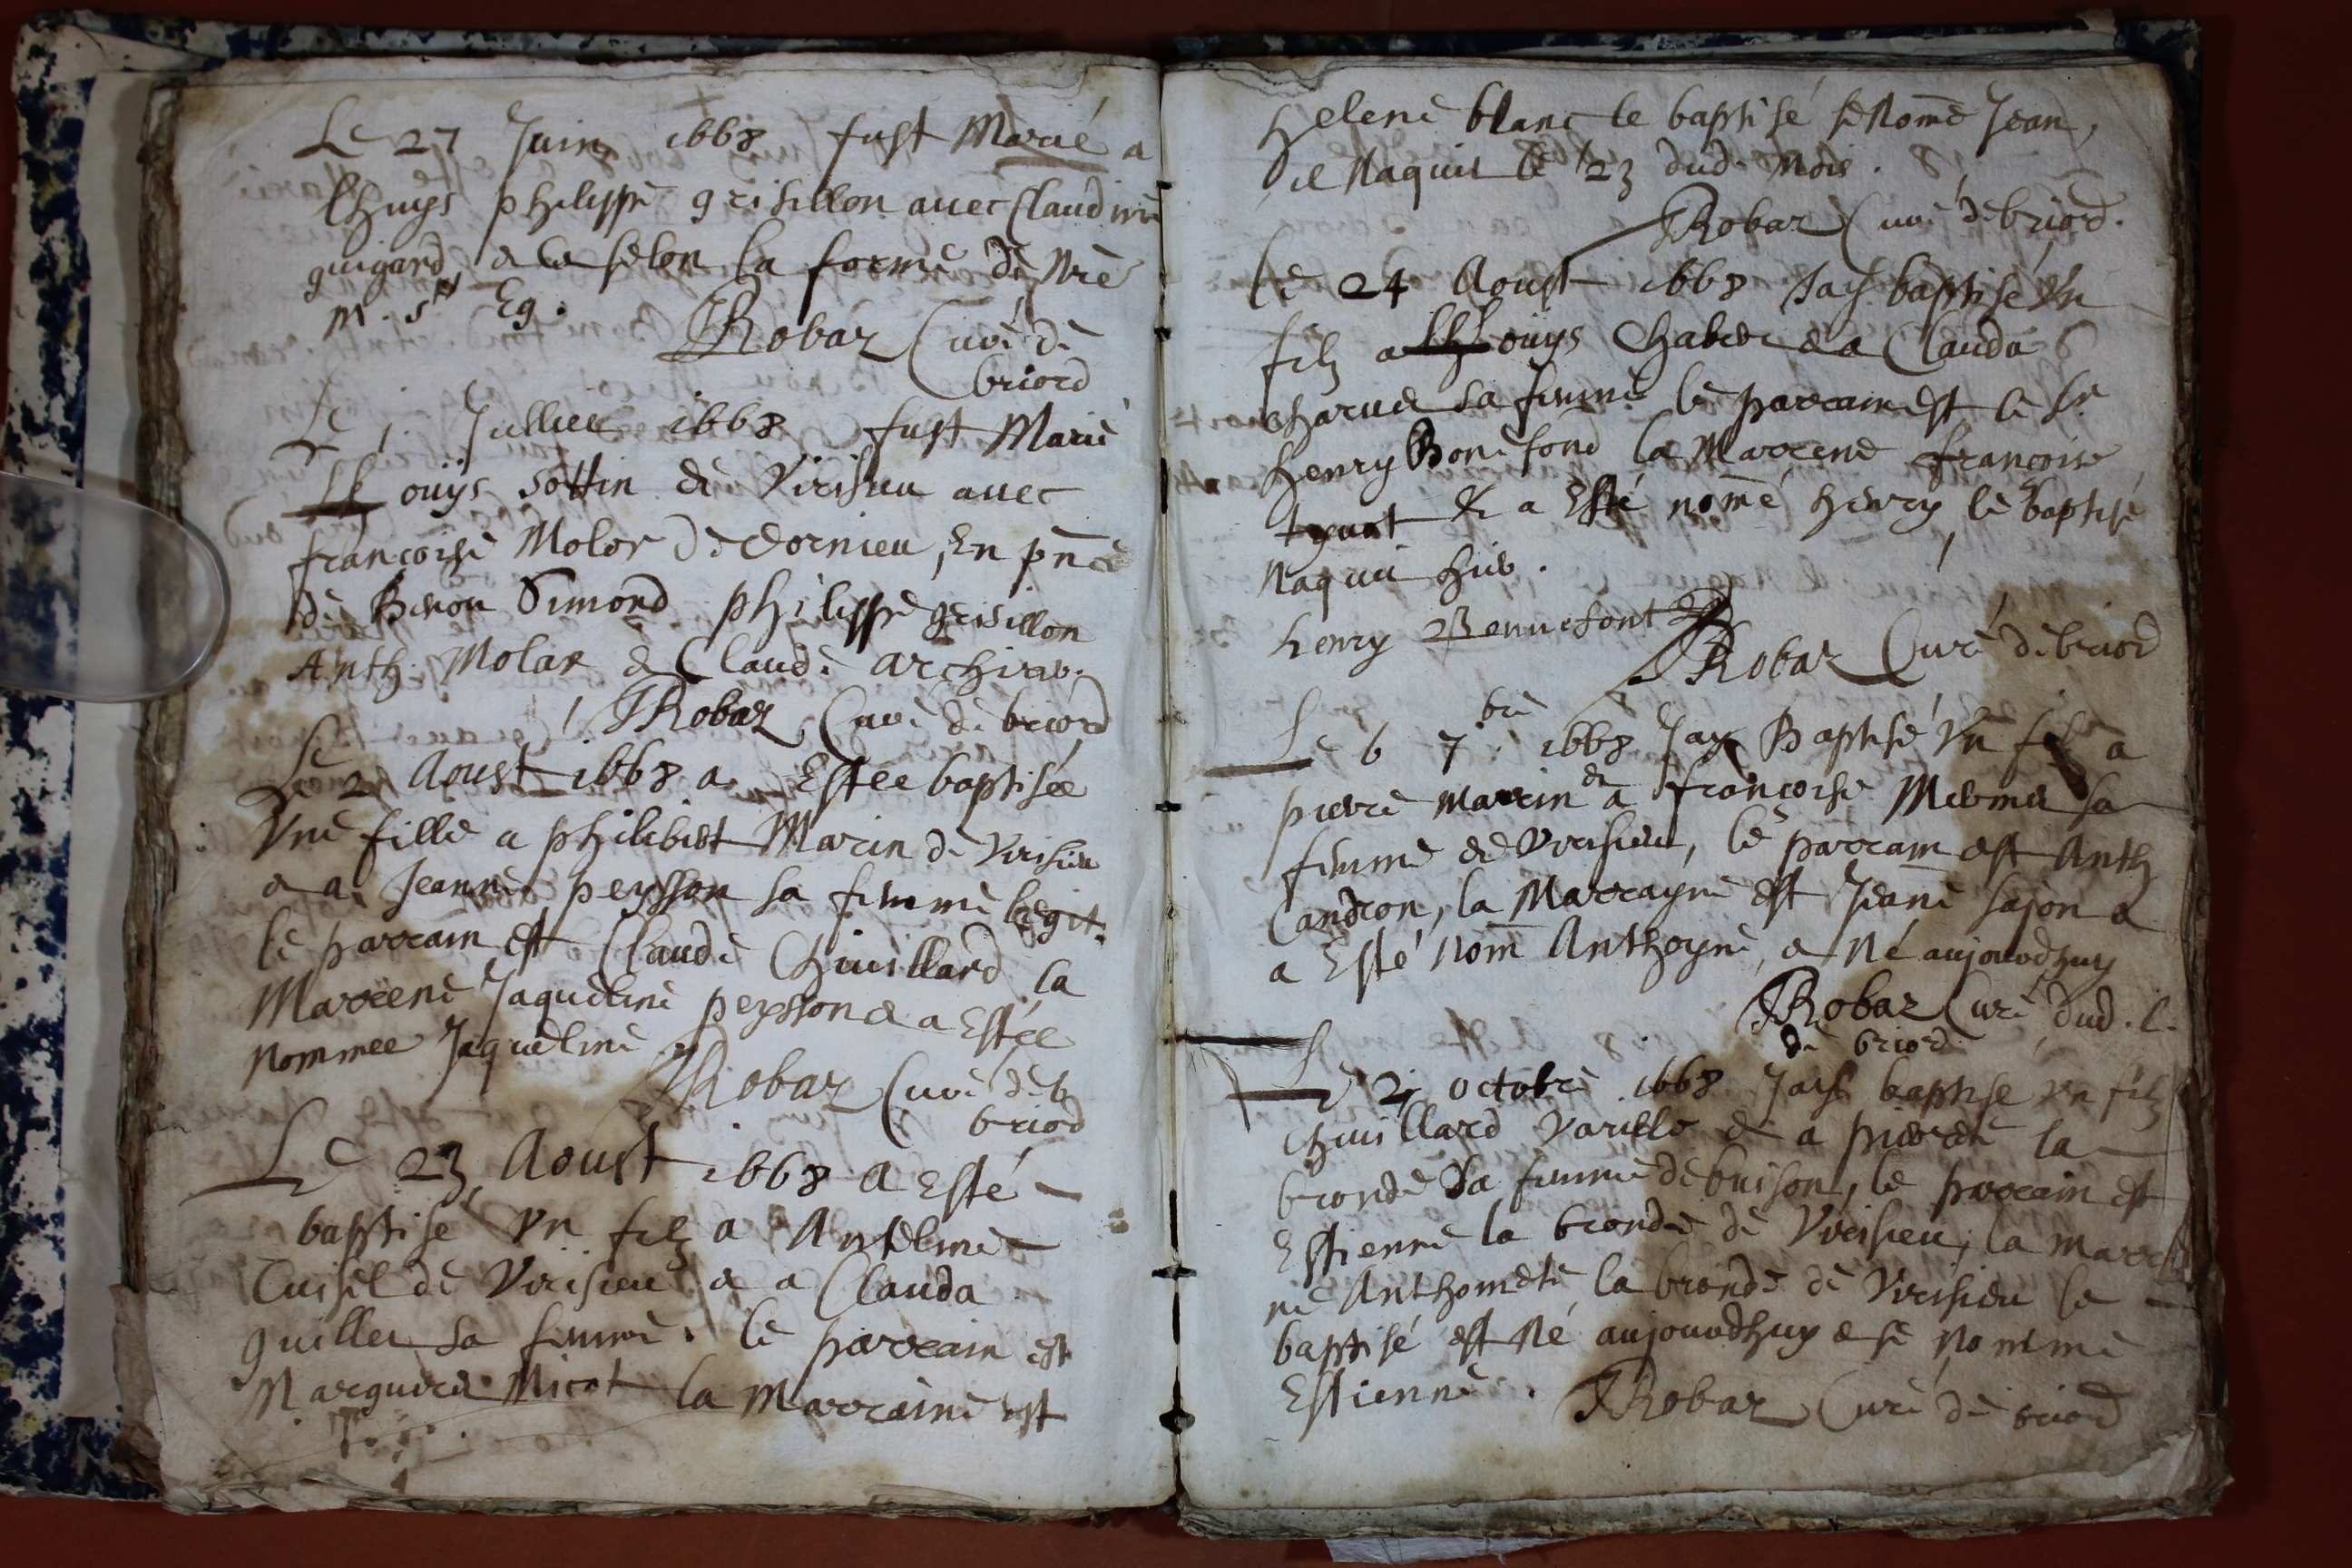 Le 27 Juin 1668 fust Marié a
lhuys philippe grisillon avec Claudine
guigard & ce selon la forme de nre
m. ste Eg.
JRobaz Curé de
briord
Le 1. Jullien 1668 fust Marié
Lhouys sottin de Virisieu avec
francoise Molor de dornieu, En pnce
de Simond philippe grisillon
Anth. Molar & Claude
JRobaz Curé de briord
Le 2 Aoust 1668 a Estee baptisée
Vne fille a philibert Marin de Virisieu
& a Jeanne peysson sa femme legit.
le parrain est Claude Chuillard la
Marrene Jaqueline peysson & a Estée
nommee Jaqueline
JRobaz Curé de b
briord
Le 23 Aoust 1668 a Esté
baptisé vn filz a Antelme
Cuisel de Virisieu & a Clauda
guillet sa femme. le parrain est
Micot la Marraine est
Helene blanc le baptisé se nome Jean,
il naquit le 23 dud. mois.
JRobaz Curé de briord.
Le 24 Aoust 1668 Jay baptisé vn
filz a Lhouys & a Clauda
sa femme le parrain est le Sr
Henry Bonefond la Marrene francoise
& a Esté nomé henry, le baptisé
naquit hier.
henry Bennefont
JRobaz Curé de briord
Le 6 7bre 1668 Jay Baptisé vn filz a
pierre Marrin & a françoise sa
femme de Virisieu, le parrain est Anth
Candron, la Marrayne est Jeane sajon &
a Esté nom Anthoyne, & Né aujourdhuy
JRobaz Curé dud. l.
de briord
Le 21 octobre 1668 Jay baptisé vn filz
Chuillard & a pierrette la
bronde sa femme de buison, le parrain est
Estienne la bronde de Virisieu, la marre
ne Anthomete la bronde de Virisieu le
baptisé est Né aujourdhuy & se nomme
Estienne.
JRobaz Curé de briord